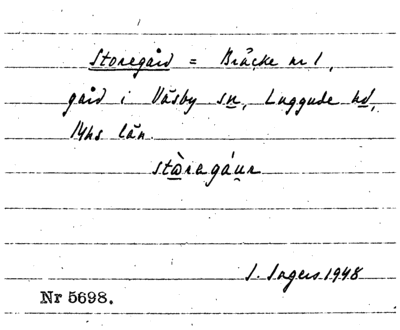 Storegård = Bräcke nr 1,
gård i Väsby sn, Luggude hd,
Mhs län.
stɷ̀ragáu̯r
S. Ingers 1948
Nr 5698.